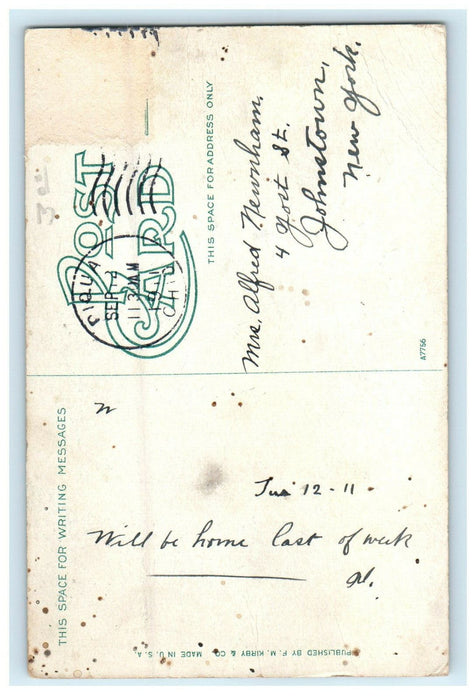 POST CARD
THIS SPACE FOR WRITING MESSAGES
THIS SPACE FOR ADDRESS ONLY
PIQUA
SEP
11 30 AM
OHIO
Mrs. Alfred Newnham,
4 Yost St.
Johnstown,
New York.
A7756
12-11
Will be home last of week
PUBLISHED BY F. M. KIRBY & CO. MADE IN U. S. A.